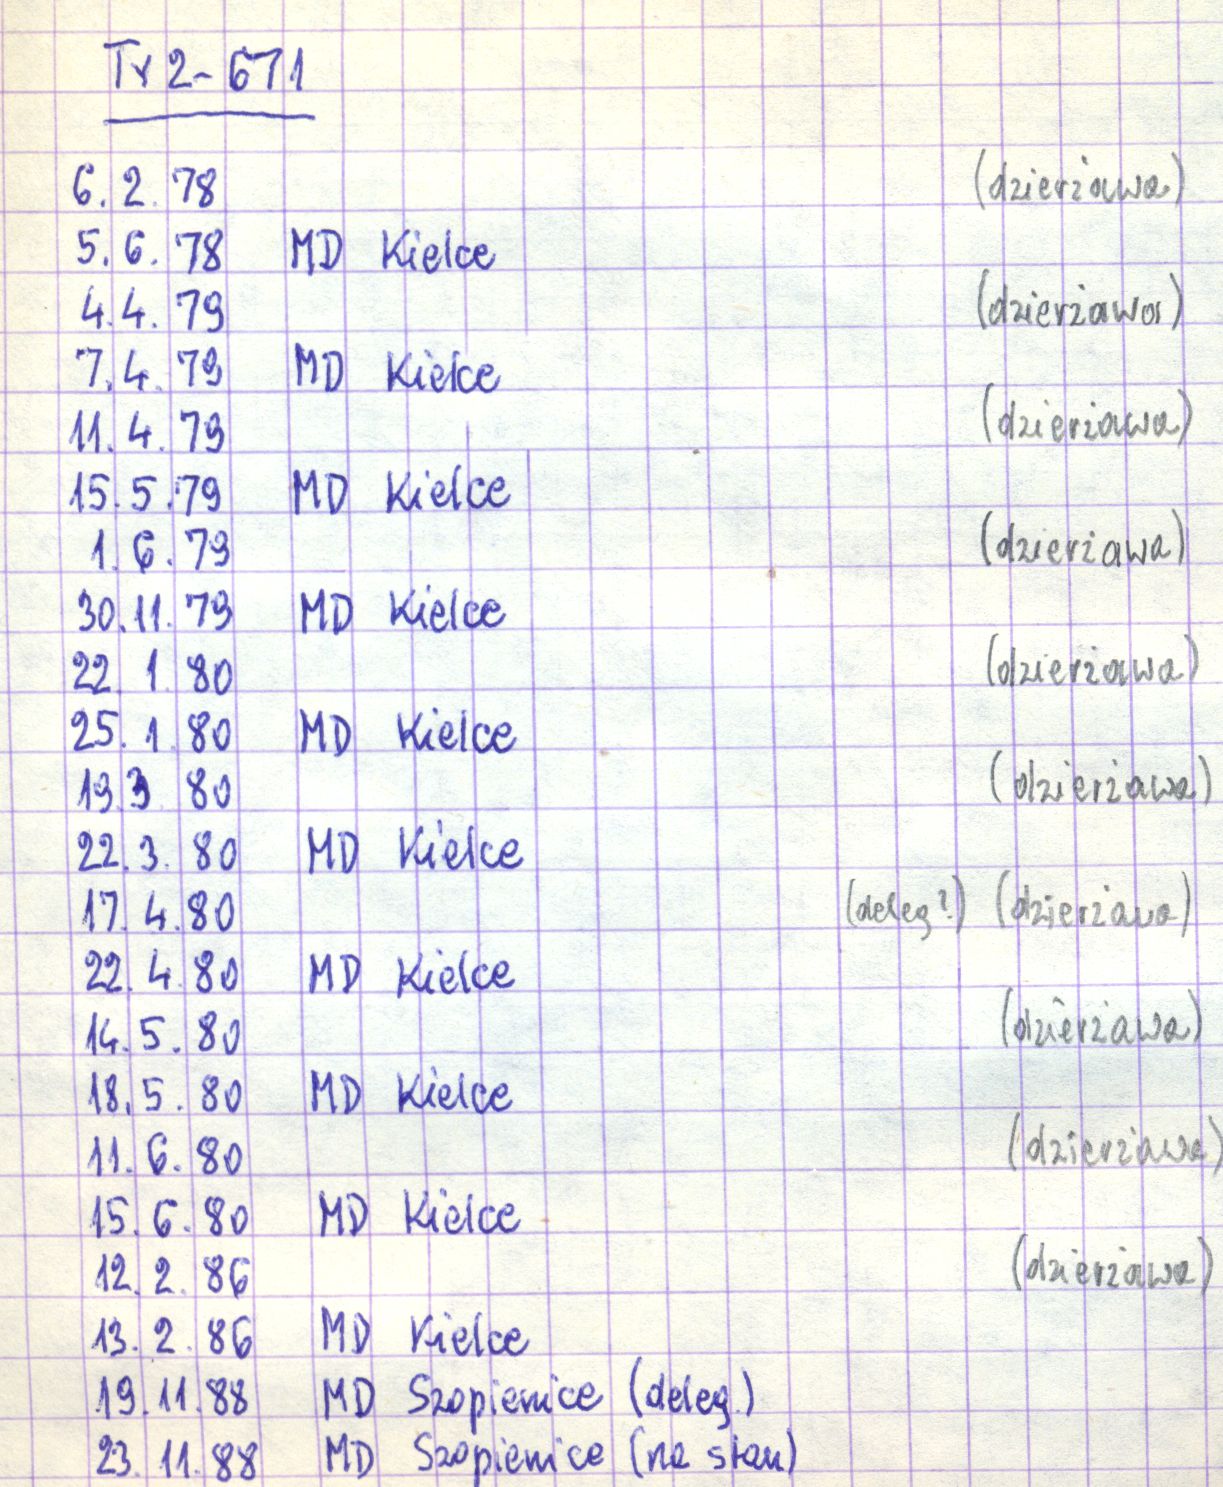 Ty2-671
6.2.78 (dzierżawa)
5.6.78 MD Kielce
4.4.79 (dzierżawa)
7.4.79 MD Kielce
11.4.79 (dzierżawa)
15.5.79 MD Kielce
1.6.79 (dzierżawa)
30.11.79 MD Kielce
22.1.80 (dzierżawa)
25.1.80 MD Kielce
19.3.80 (dzierżawa)
22.3.80 MD Kielce
17.4.80 (deleg?) (dzierżawa)
22.4.80 MD Kielce
14.5.80 (dzierżawa)
18.5.80 MD Kielce
11.6.80 (dzierżawa)
15.6.80 MD Kielce
12.2.86 (dzierżawa)
13.2.86 MD Kielce
19.11.88 MD Szopienice (deleg.)
23.11.88 MD Szopienice (na stan)